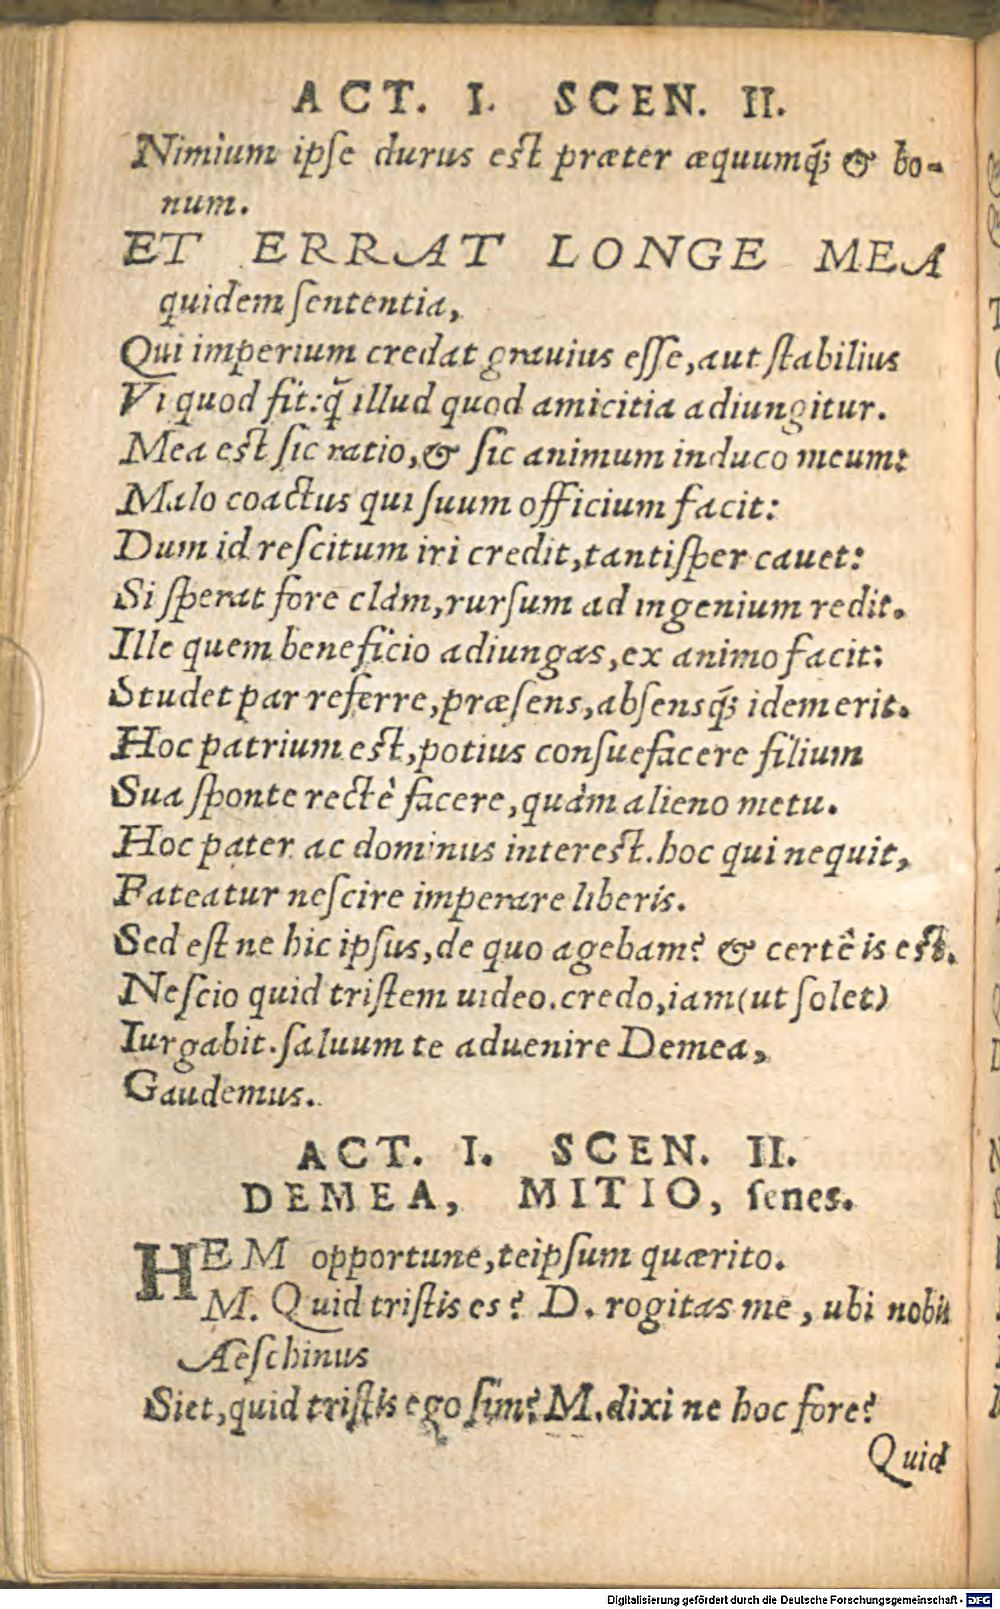 ACT. I. SCEN. II.
Nimium ipſe durus eſt præter æquumq́; & bo-
num.
ET ERRAT LONGE MEA
quidem ſententia,
Qui imperium credat grauius eſſe, aut ſtabilius
Vi quod fit: q̃ illud quod amicitia adiungitur.
Mea eſt ſic ratio, & ſic animum induco meum:
Malo coactus qui ſuum officium facit:
Dum id reſcitum iri credit, tantiſper cauet:
Si ſperat fore clàm, rurſum ad ingenium redit.
Ille quem beneficio adiungas, ex animo facit:
Studet par referre, præſens, abſensq́; idem erit.
Hoc patrium eſt, potius conſuefacere filium
Sua ſponte rectè facere, quàm alieno metu.
Hoc pater ac dominus intereſt. hoc qui nequit,
Fateatur neſcire imperare liberis.
Sed eſt ne hic ipſus, de quo agebam? & certê is eſt.
Neſcio quid triſtem uideo. credo, iam (ut ſolet)
Iurgabit. ſaluum te aduenire Demea,
Gaudemus.
ACT. I. SCEN. II.
DEMEA, MITIO, ſenes.
HEM opportune, teipſum quærito.
M. Quid triſtis es? D. rogitas me, ubi nobis
Æſchinus
Siet, quid triſtis ego ſim? M. dixi ne hoc fore?
Quid
Digitalisierung gefördert durch die Deutsche Forschungsgemeinschaft - DFG